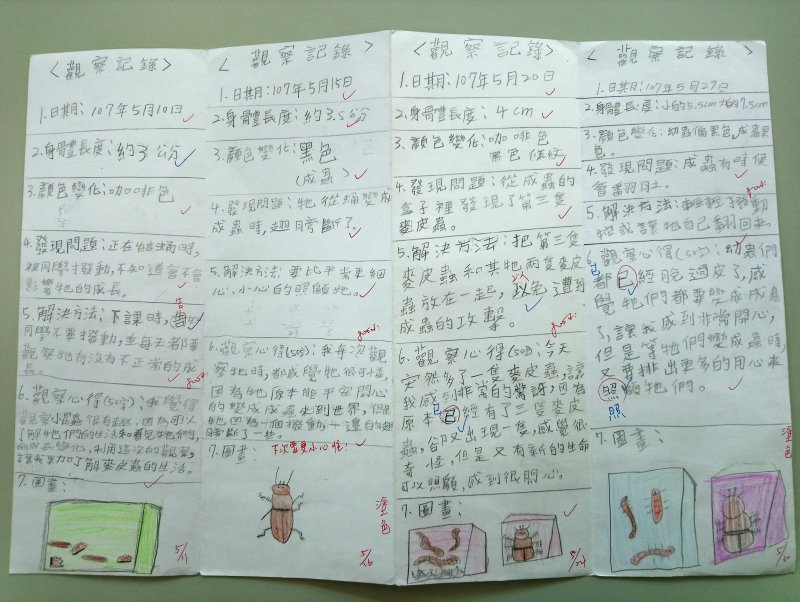 <觀察記錄>
1.日期：107年5月10日
2.身體長度：約3公分
3.顏色變化：咖啡色
4.發現問題：正在結蛹時，
被同學撥動，不知道會不會
影響牠的成長。
告
5.解決方法：下課時，告
同學不要撥動，並每天都要
觀察牠有沒有不正常的成
長。
good.
6.觀察心得(50字)：我覺得
觀察小昆蟲很有趣，因為可以
了解牠們的生活和看見牠們
的成長變化，利用這次的觀察，
讓我更加了解麥皮蟲的生活。
7.圖畫：
5/11
<觀察記錄>
1.日期：107年5月15日
2.身體長度：約3.5公分
3.顏色變化：黑色
(成蟲)
4.發現問題：牠從蛹變成
成蟲時，翅膀斷了。
5.解決方法：要比平常更細
心、小心的照顧牠。
good.
6.觀察心得(50字)：我每次觀
察牠時，都感覺牠很可憐，
因為牠原本能平安開心
的變成成蟲來到世界，但是
牠因為一個撥動，一邊的翅
膀斷了一些。
下次要更小心喔！
7.圖畫：
塗色
5/16
<觀察記錄>
1.日期：107年5月20日
2.身體長度：4cm
3.顏色變化：咖啡色
黑色條紋
4.發現問題：從成蟲的
盒子裡發現了第三隻
麥皮蟲。
5.解決方法：把第三隻
麥皮蟲和其牠兩隻麥皮
蟲放在一起，以免遭到
成蟲的攻擊。
good.
6.觀察心得(50字)：今天
突然多了一隻麥皮蟲，讓
我感到非常的驚訝，因為
原本已經有了三隻麥皮
蟲，卻又出現一隻，感覺很
奇怪，但是又有新的生命
可以照顧，感到很開心。
7.圖畫：
5/24
<觀察記錄>
1.日期：107年5月29日
2.身體長度：小的5.5cm大的7.5cm
3.顏色變化：幼蟲偏黑色，成蟲黑
色。
4.發現問題：成蟲有時候
會翻肚。
good.
5.解決方法：輕輕撥動
牠或讓牠自己翻回來。
6.觀察心得(50字)：幼蟲們
都已經脫過皮了，感
覺牠們都要變成成蟲
了，讓我感到非常開心，
但是等牠們變成成蟲時，
又要排出更多的用心來
照顧牠們。
照
7.圖畫：
塗色